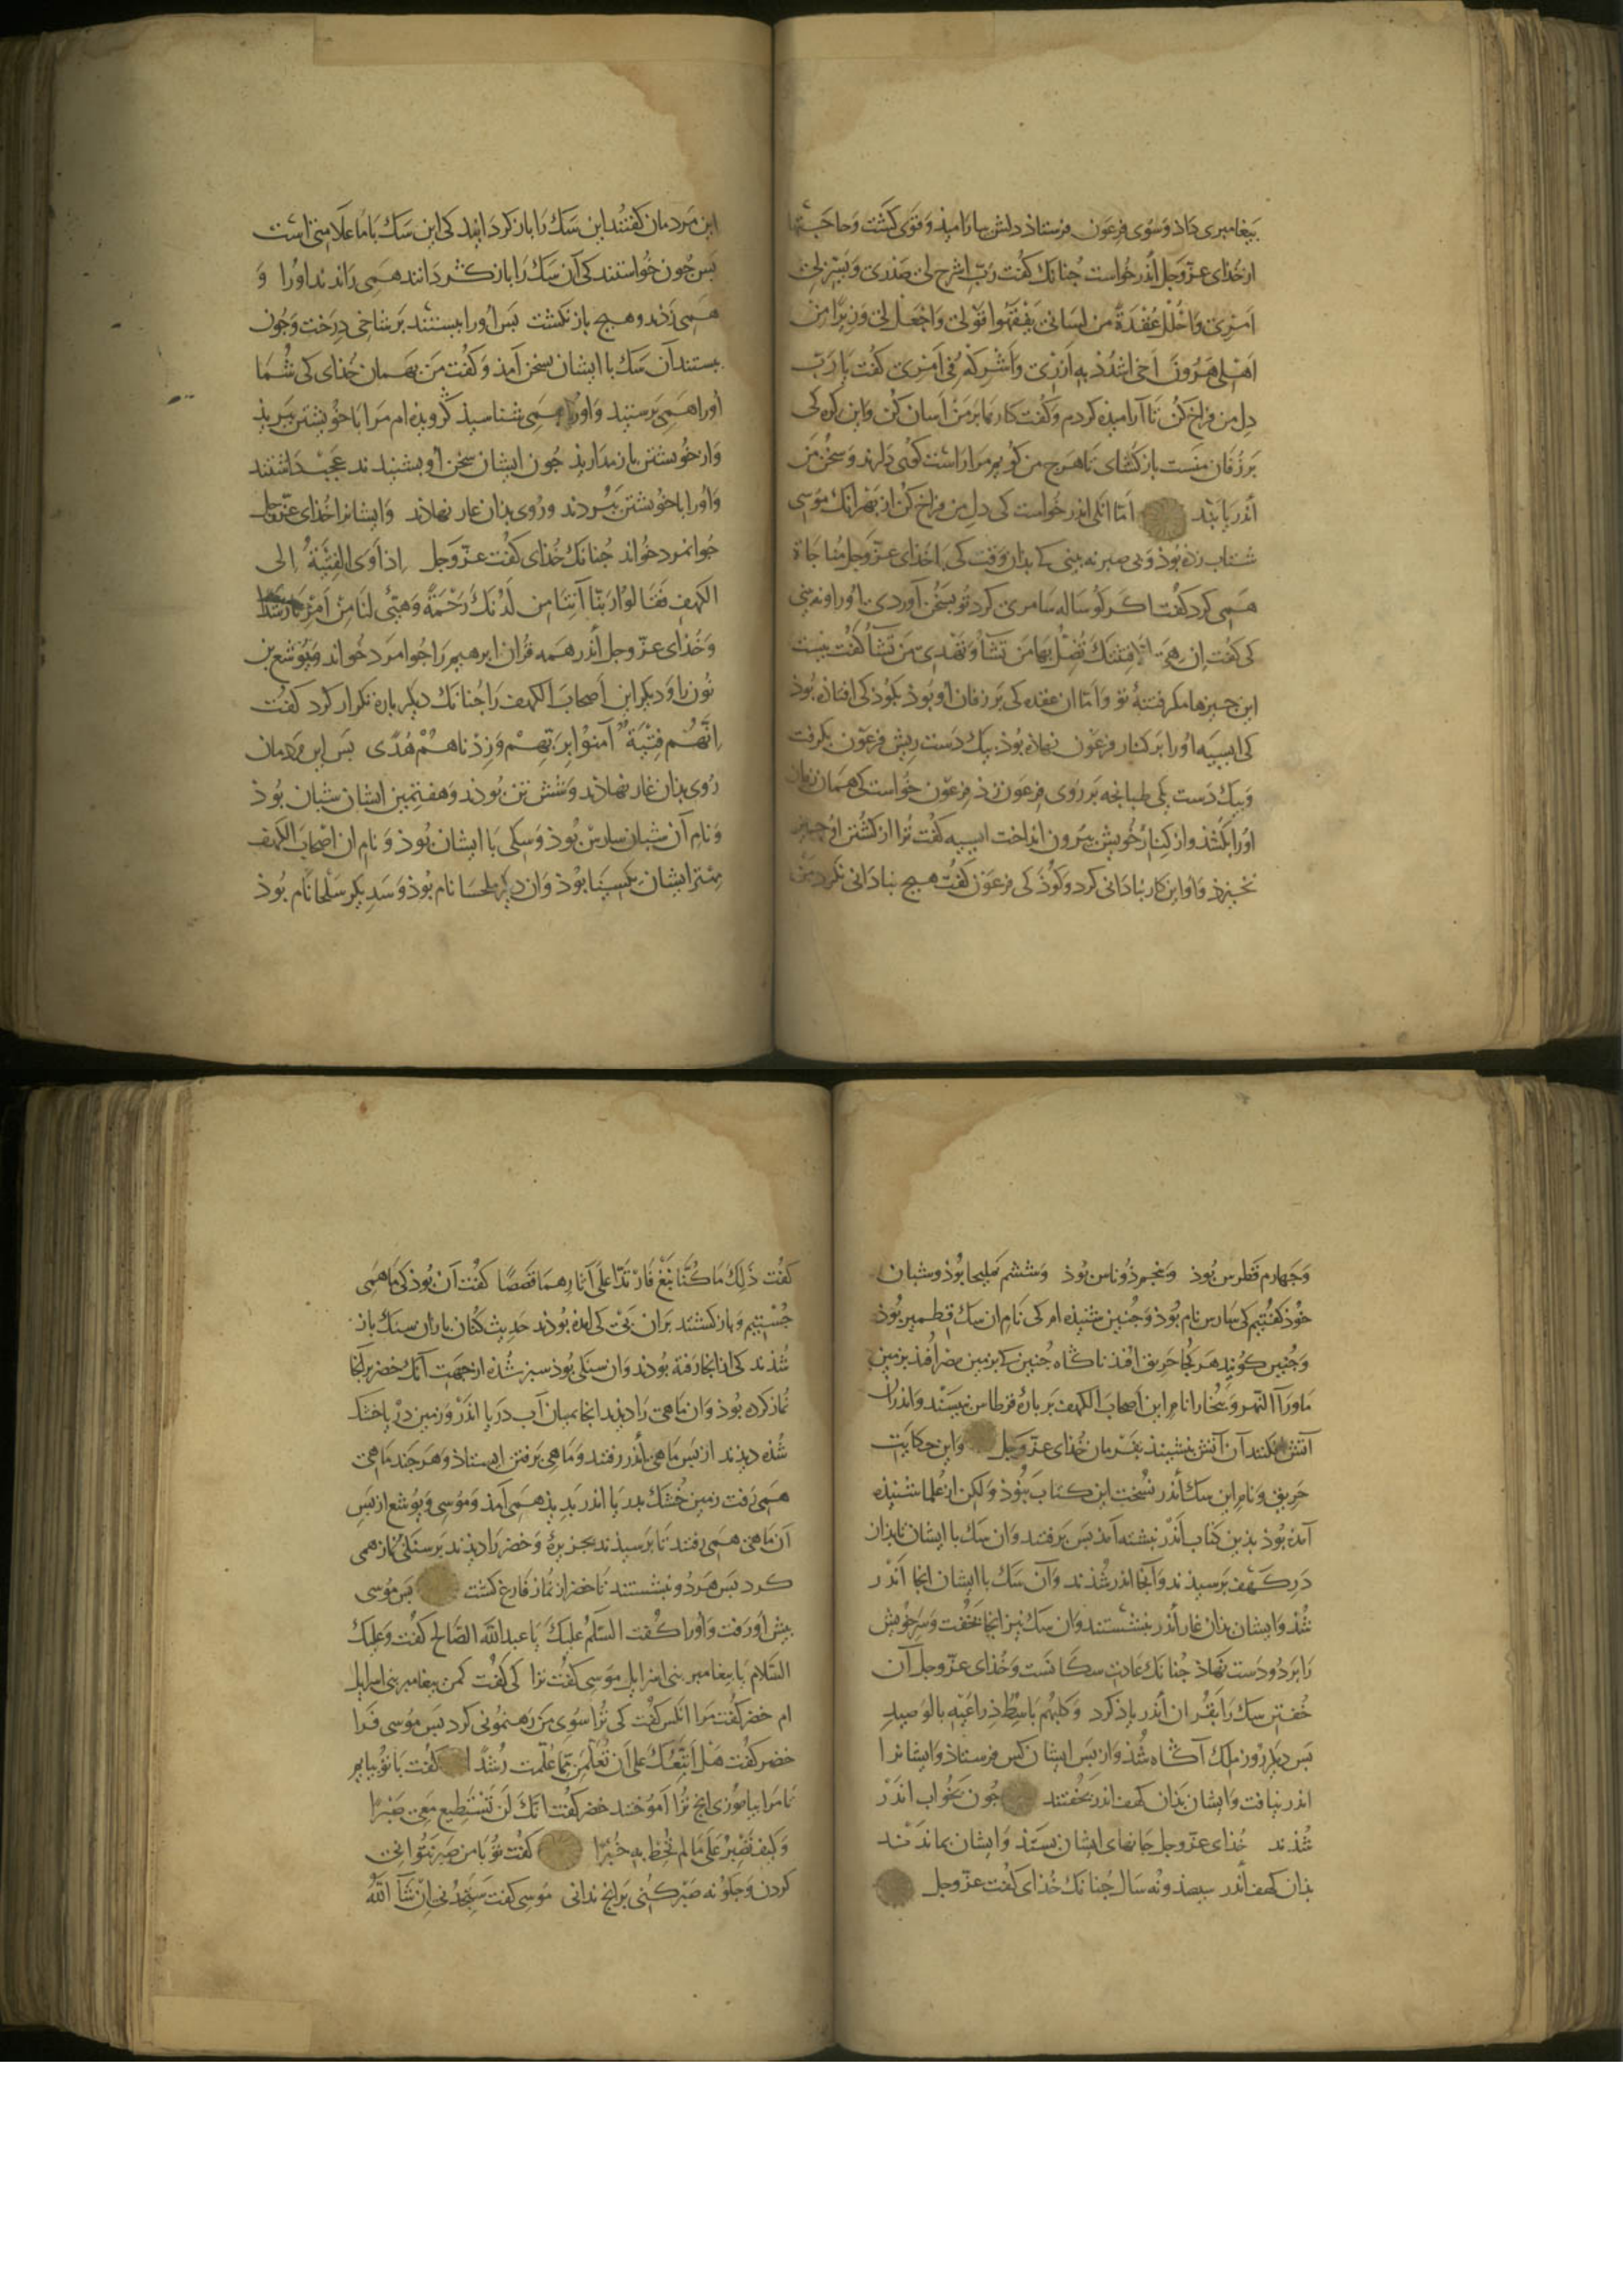 بیغامبری داذ و سوی فرعون فرستاذ دلش بیارامیذ و قوی کشت و حاجتها
از خذای عزّ و جل اندر خواست جنانک کفت ربّ اشرح لی صدری و یسّر لی
امری و احلل عقدة من لسانی یفقهوا قولی و اجعل لی وزیرًا من
اهلی هرون اخی اشدد به ازری و اشرکه فی امری کفت یا ربّ
دل من فراخ کن تا آرامیذه کردم و کفت کارها بر من آسان کن و این کره کی
بر زفان منست باز کشای تا هرج من کویم مرا راست کوی دارند و سخن من
اندر یابند امّا انکی اندر خواست کی دل من فراخ کن از بهر آنک موسی
شتاب زده بوذ و بی صبر نه بینی کی بدان وقت کی با خذای عزّ و جل مناجاة
همی کرد کفت اکر کوساله سامری کرد تو بسخن آوردی او را و نه بینی
کی کفت ان هی الا فتنتک تضل بها من تشآ و تهدی من تشآ کفت نیست
این جیزها مکر فتنهٔ تو و امّا ان عقده کی بر زفان او بوذ بکوذکی افتاذه بوذ
کی ایسیه او را بر کنار فرعون نهاذه بوذ بیک دست ریش فرعون بکرفت
و بیک دست یکی طبانجه بر روی فرعون زذ فرعون خواست کی همان زمان
او را بکشذ و از کنار خویش بیرون انداخت ایسیه کفت ترا از کشتن او جیز
نخیزذ و او این کار بناذانی کرد و کوذکی فرعون کفت هیج بناذانی نکرد
این مردمان کفتند این سک را باز کردانید کی این سک با ما علامتی است
بس جون خواستند کی آن سک را باز کردانند همی راندند او را و
همی زدند و هیج باز نکشت بس او را ببستند بر شاخی درخت و جون
ببستند آن سک با ایشان بسخن آمذ و کفت من بهمان خذای کی شما
او را همی برستیذ و او را همی شناسیذ کرویذه ام مرا با خویشتن ببریذ
و از خویشتن باز مداریذ جون ایشان سخن او بشنیدند عجب داشتند
و او را با خویشتن ببردند و روی بذان غار نهاذند و ایشانرا خذای عزّ و جل
جوانمرد خواند جنانک خذای کفت عزّ و جل اذ اوی الفتیة الی
الکهف فقالوا ربنا آتنا من لدنک رحمة و هیّئ لنا من امرنا رشدًا
و خذای عز و جل اندر همه قران ابرهیم را جوامرد خواند و یوشع بن
نون را و دیکر این اصحاب الکهف را جنانک دیکر باره تکرار کرد کفت
انّهم فتیة آمنوا بربّهم و زدناهم هدًی بس این مردمان
روی بذان غار نهاذند و شش تن بوذند و هفتمین ایشان شبان بوذ
و نام آن شبان سارس بوذ و سکی با ایشان بوذ و نام ان اصحاب الکهف
مهتر ایشان یکسینا بوذ و ان دیکر ملحسا نام بوذ و سدیکر سلحا نام بوذ
و جهارم قطرس بوذ و بنجم ذوناس بوذ و ششم تملیحا بوذ و شبان
خوذ کفتیم کی سارس نام بوذ و جنین شنیذه ام کی نام ان سک قطمیر بوذ
و جنین کویند هر کجا حریق افتذ ناکاه جنین کی بزمین مضر افتذ بزمین
ماورآ النهر و بخارا نام این اصحاب الکهف بر بارهٔ قرطاس نبیسند و اندران
آتش فکنند آن آتش بنشیند بفرمان خذای عزّ و جل و این حکایت
حریق و نام این سک اندر نسخت این کتاب نبوذ و لکن از علما شنیذه
آمذه بوذ بذین کتاب اندر نبشته آمذ بس برفتند و ان سک با ایشان تا بذان
در کهف برسیذند و آنجا اندر شذند و آن سک با ایشان آنجا اندر
شذ و ایشان بذان غار اندر بنشستند و ان سک نیز آنجا بخفت و سر خویش
را بر دو دست نهاذ جنانک عادت سکانست و خذای عزّ و جل آن
خفتن سک را بقران اندر یاذ کرد و کلبهم باسط ذراعیه بالوصید
بس دیکر روز ملک آکاه شذ و از بس ایشان کس فرستاذ و ایشانرا
اندر نیافت و ایشان بذان کهف اندر بخفتند جون بخواب اندر
شذند خذای عزّ و جل جانهای ایشان بستذ و ایشان بماندند
بذان کهف اندر سیصذ و نه سال جنانک خذای کفت عزّ و جل
کفت ذلک ما کنّا نبغ فارتدّا علی آثارهما قصصًا کفت آن بوذ کی ما همی
جستیم و باز کشتند بران بی کی امذه بوذند حدیث کنان بازان سنک باز
شذند کی از آنجا رفته بوذند و ان سنکی بوذ سبز شذه از جهت آنک خضر بر آنجا
نماز کرده بوذ و ان ماهی را دیذند آنجا بمیان آب دریا اندر و زمین دریا خشک
شذه دیذند از بس ماهی اندر رفتند و ماهی برفتن ایستاذ و هر جند ماهی
همی رفت زمین خشک بدریا اندر بدیذ همی آمذ و موسی و یوشع از بس
آن ماهی همی رفتند تا برسیذند بجزیرهٔ و خضر را دیذند بر سنکی نماز همی
کرد بس هر دو بنشستند تا خضر از نماز فارغ کشت بس موسی
بیش او رفت و او را کفت السّلم علیک یا عبدالله الصّالح کفت و علیک
السّلام یا بیغامبر بنی اسرایل موسی کفت ترا کی کفت کمن بیغامبر بنی اسرایل
ام خضر کفت مرا انکس کفت کی ترا سوی من رهنمونی کرد بس موسی فرا
خضر کفت هل اتّبعک علی ان تعلّمن ممّا علّمت رشدًا کفت با تو بیایم
تا مرا بیاموزی انج ترا آموختند خضر کفت انّک لن تستطیع معی صبرًا
و کیف تصبر علی ما لم تحط به خبرًا کفت تو با من صبر نتوانی
کردن و جکونه صبر کنی بر انج ندانی موسی کفت ستجدنی ان شآ الله